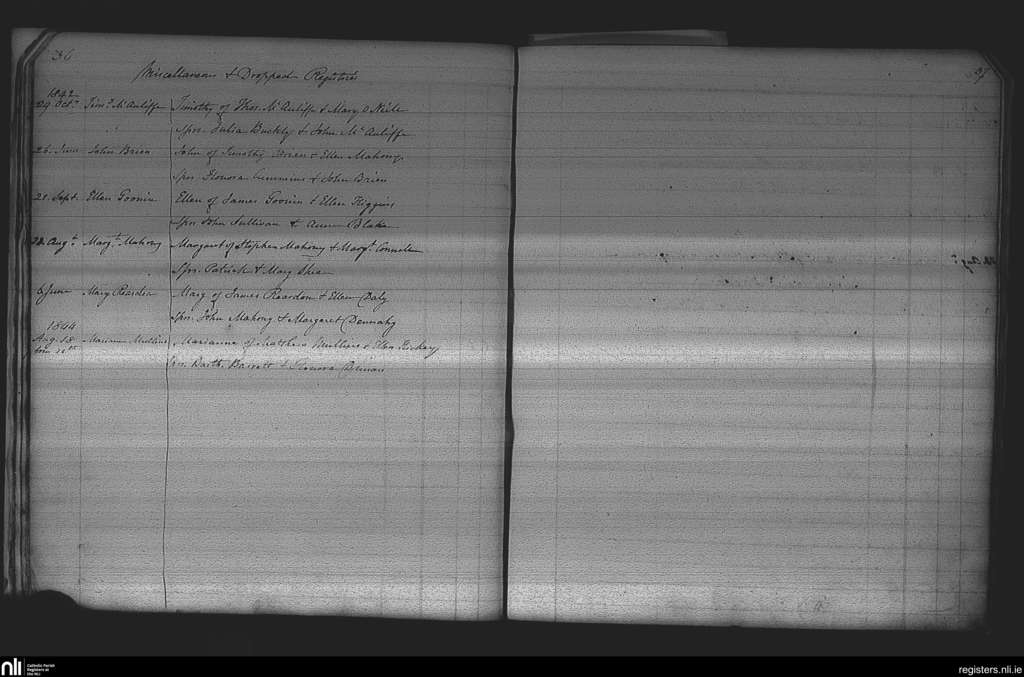 36
Miscellaneous & Dropped Registries
1842
29 Octr. Timy. McAuliffe Timothy of Thos. McAuliffe & Mary O Neile
Spos. Julia Buckly & John Mc Auliffe
26 June John Brien John of Timothy Brien & Ellen Mahony
Spos. Honora Cummins & John Brien
21 Sept. Ellen Goonin Ellen of James Goonin & Ellen Higgins
Spos. John Sullivan & Anne Blake
Augt. Margt. Mahony Margaret of Stephen Mahony & Margt. Connell
Spos. Patrick & Mary Shea
6 June Mary Reardon Mary of James Reardon & Ellen Daly
Spos. John Mahony & Margaret Dennahy
1844
Aug. 18 Mullins Marianne of Mullins & Ellen Hickey
Barth. Barrett & Honora
37
nli
Catholic Parish
Registers at
the NLI
registers.nli.ie